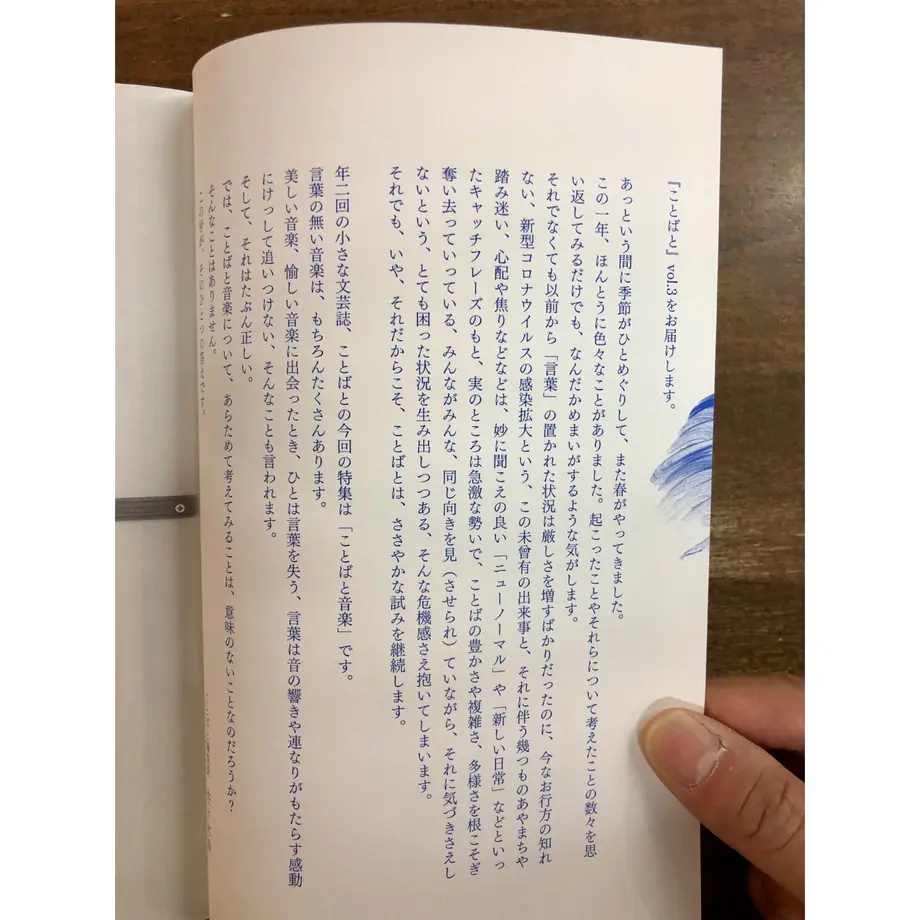 『ことばと』vol.3をお届けします。
あっという間に季節がひとめぐりして、また春がやってきました。
この一年、ほんとうに色々なことがありました。起こったことやそれらについて考えたことの数々を思
い返してみるだけでも、なんだかめまいがするような気がします。
それでなくても以前から「言葉」の置かれた状況は厳しさを増すばかりだったのに、今なお行方の知れ
ない、新型コロナウイルスの感染拡大という、この未曾有の出来事と、それに伴う幾つものあやまちや
踏み迷い、心配や焦りなどなどは、妙に聞こえの良い「ニューノーマル」や「新しい日常」などといっ
たキャッチフレーズのもと、実のところは急激な勢いで、ことばの豊かさや複雑さ、多様さを根こそぎ
奪い去っていっている、みんながみんな、同じ向きを見（させられ）ていながら、それに気づきさえし
ないという、とても困った状況を生み出しつつある、そんな危機感さえ抱いてしまいます。
それでも、いや、それだからこそ、ことばとは、ささやかな試みを継続します。
年二回の小さな文芸誌、ことばとの今回の特集は「ことばと音楽」です。
言葉の無い音楽は、もちろんたくさんあります。
美しい音楽、愉しい音楽に出会ったとき、ひとは言葉を失う、言葉は音の響きや連なりがもたらす感動
にけっして追いつけない、そんなことも言われます。
そして、それはたぶん正しい。
では、ことばと音楽について、あらためて考えてみることは、意味のないことなのだろうか？
そんなことはありません。
この号が、そのひとつの答えです。